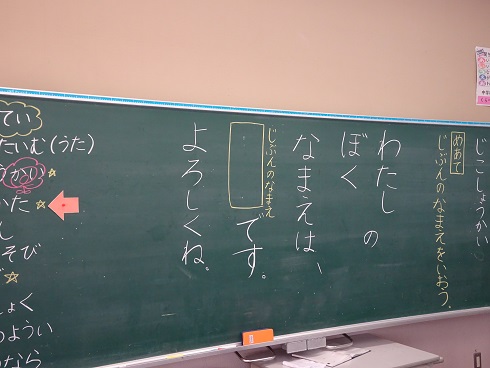 じこしょうかい
めあて じぶんのなまえをいおう。
わたし の
ぼく
なまえは、
じぶんのなまえ
です。
よろしくね。
てい
たいむ(うた)
うかい
かた
し
そび
しょく
ようい
なら